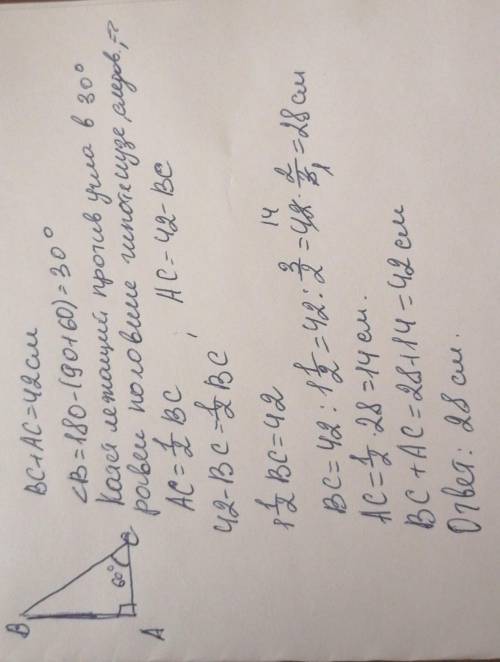 BC+AC=42см
∠B=180-(90+60)=30°
Катет лежащий против угла в 30°
равен половине гипотенузе, следов.,=>
AC=1/2 BC , AC=42-BC
42-BC=1/2 BC
1 1/2 BC=42
BC=42:1 1/2=42:3/2=42·2/3=28см
14
1
AC=1/2·28=14см.
BC+AC=28+14=42см
Ответ: 28см.
B
60°
C
A